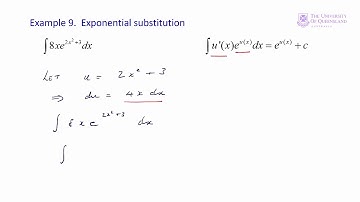 Example 9. Exponential substitution
THE UNIVERSITY OF QUEENSLAND
∫8xe^{2x²+3}dx
∫u'(x)e^{u(x)}dx = e^{u(x)} + c
Let u = 2x² + 3
⇒ du = 4x dx
∫ 8x e^{2x²+3} dx
∫